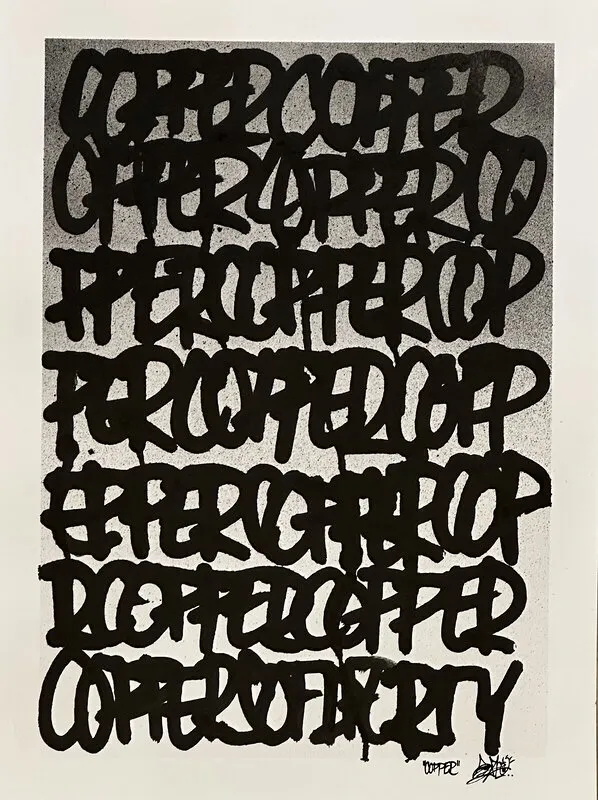 COPPERCOPPER
OPPERCOPPERCO
PPERCOPPERCOP
PERCOPPERCOPP
EPPERCOPPERCOP
RCOPPERCOPPER
COPPERSOFLIBERTY
"COPPER"